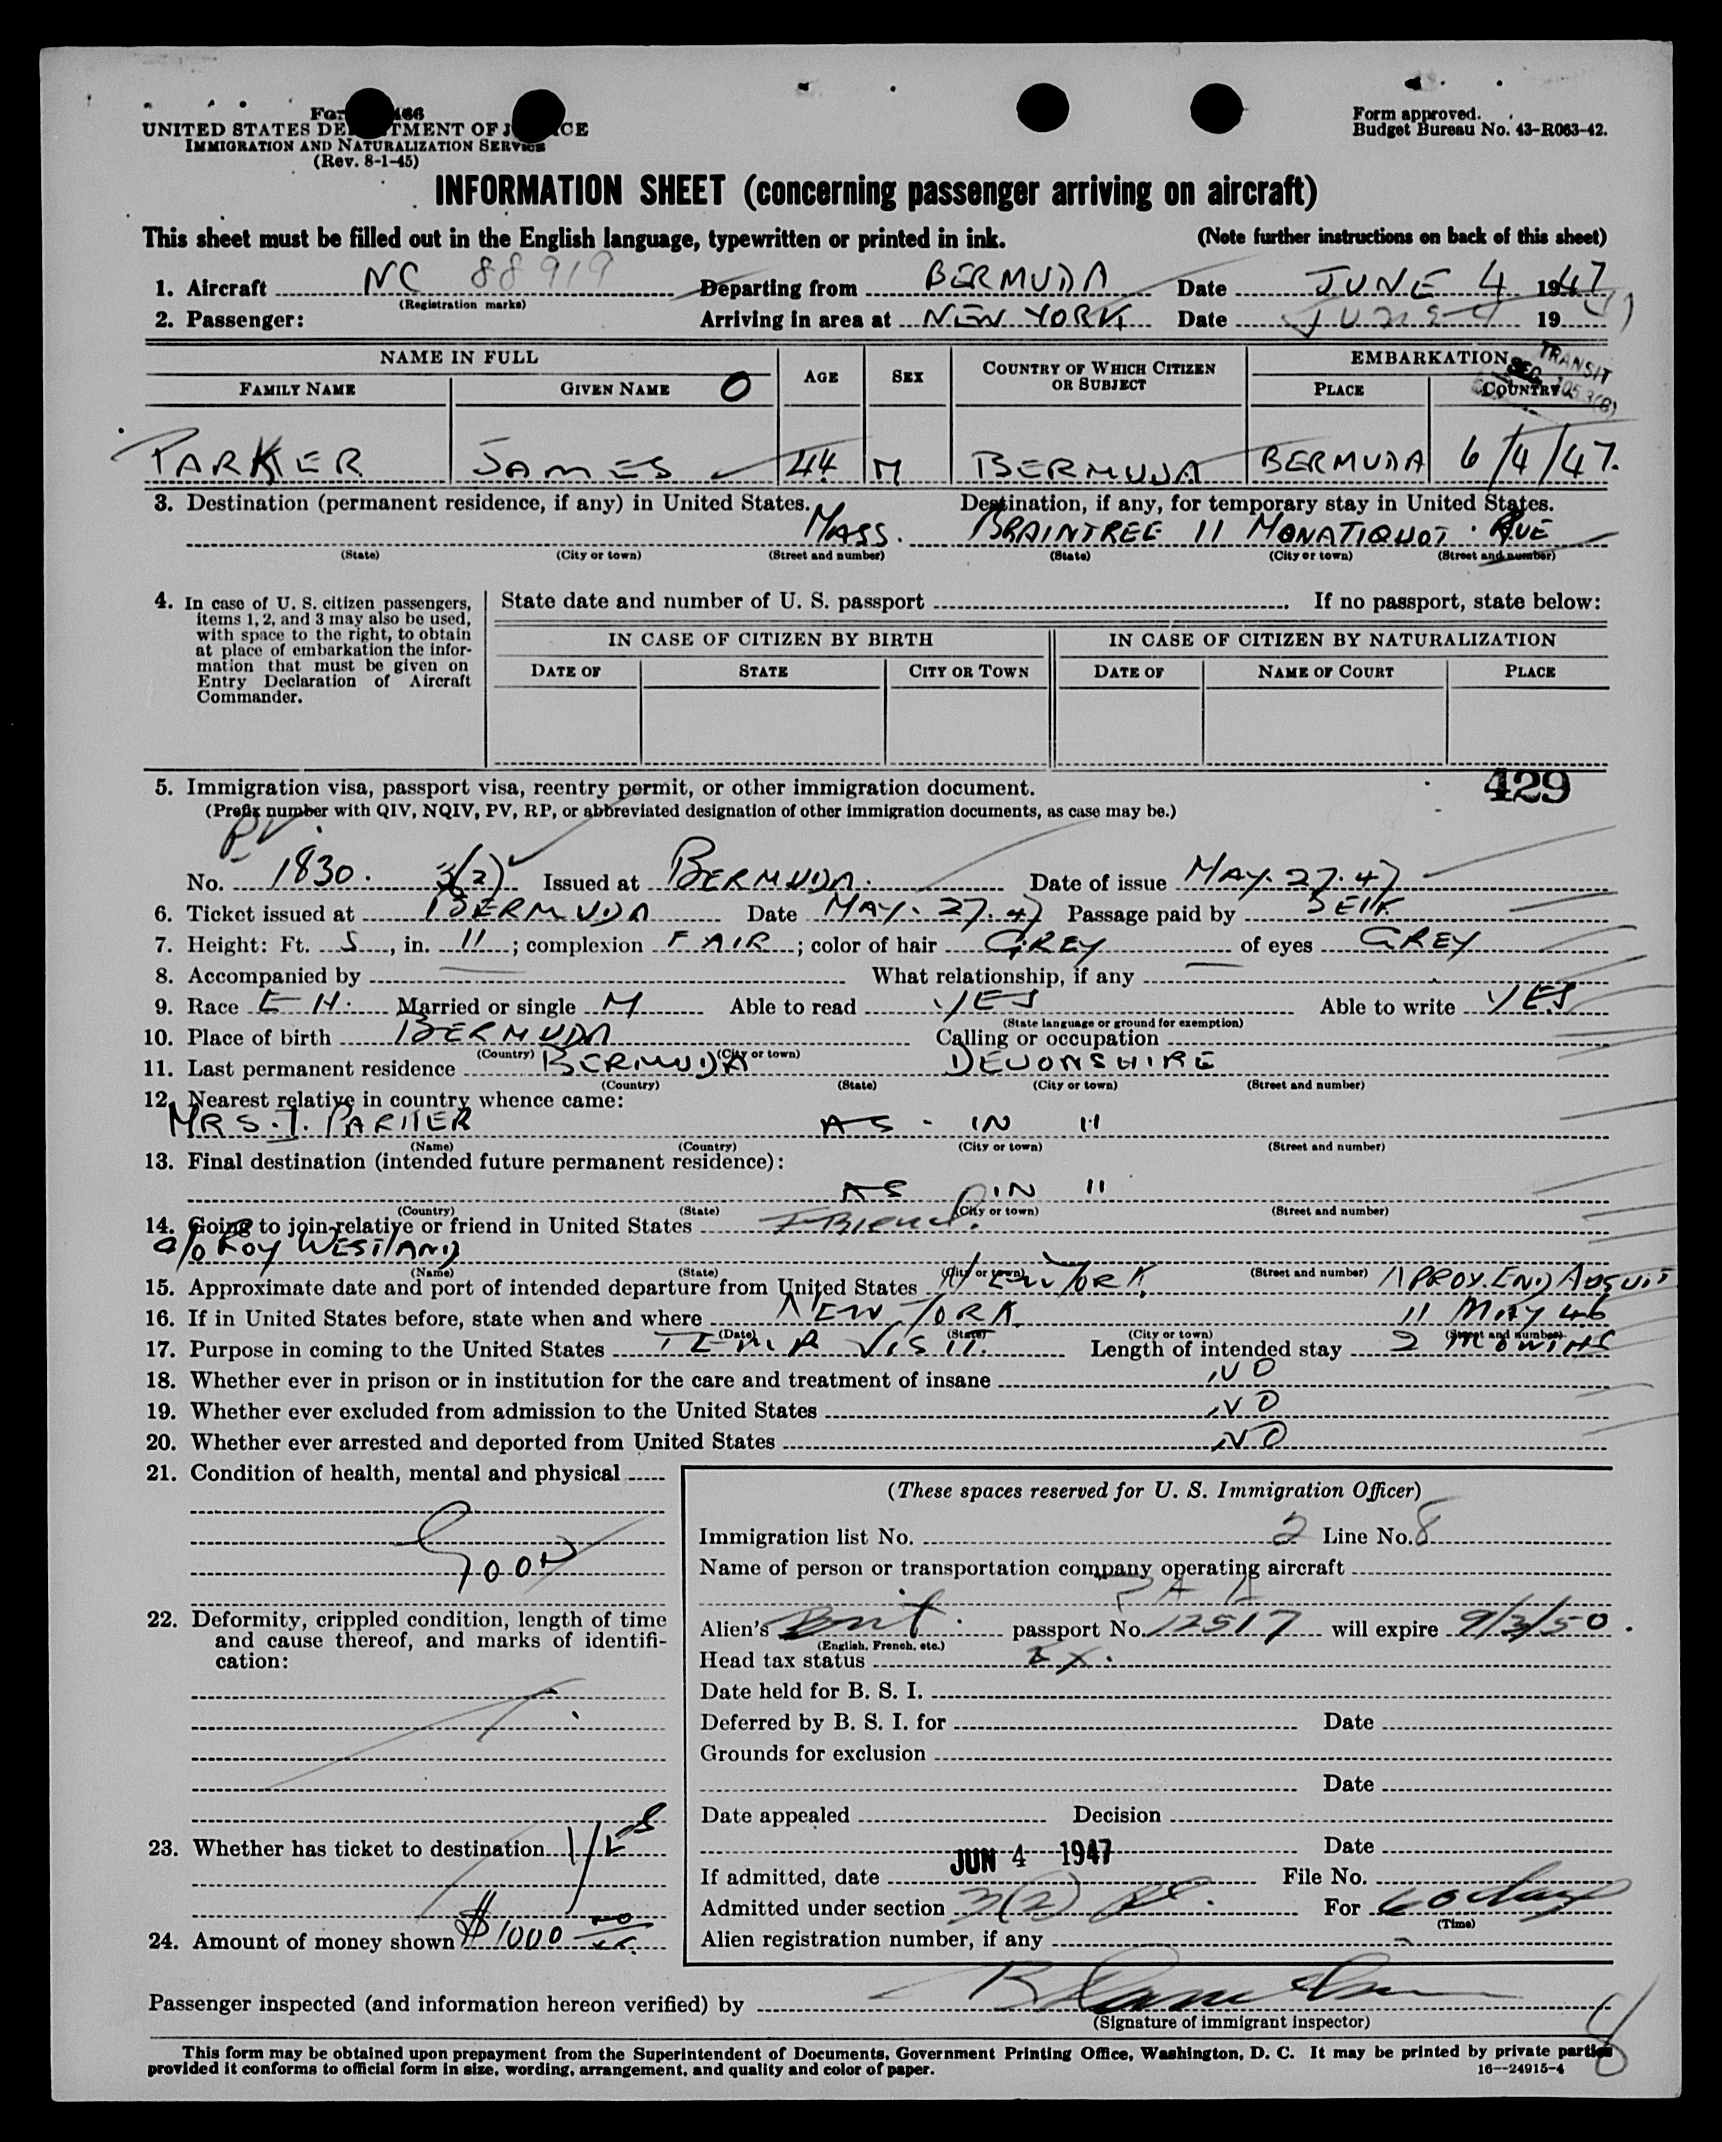 UNITED STATES DE TMENT OF J CE
IMMIGRATION AND NATURALIZATION SERVICE
(Rev. 8-1-45)
Form approved.
Budget Bureau No. 43-R063-42.
INFORMATION SHEET (concerning passenger arriving on aircraft)
This sheet must be filled out in the English language, typewritten or printed in ink. (Note further instructions on back of this sheet)
1. Aircraft NC 88919 Departing from BERMUDA Date JUNE 4 1947
(Registration marks)
2. Passenger: Arriving in area at NEW YORK Date June 4 19
NAME IN FULL AGE SEX COUNTRY OF WHICH CITIZEN OR SUBJECT EMBARKATION
TRANSIT
SEC.
FAMILY NAME GIVEN NAME O PLACE COUNTRY
PARKER JAMES 44 M BERMUDA BERMUDA 6/4/47.
3. Destination (permanent residence, if any) in United States. Destination, if any, for temporary stay in United States.
MASS. BRAINTREE 11 MONATIQUOT. AVE
(State) (City or town) (Street and number) (State) (City or town) (Street and number)
4. In case of U. S. citizen passengers, items 1, 2, and 3 may also be used, with space to the right, to obtain at place of embarkation the information that must be given on Entry Declaration of Aircraft Commander.
State date and number of U. S. passport If no passport, state below:
IN CASE OF CITIZEN BY BIRTH IN CASE OF CITIZEN BY NATURALIZATION
DATE OF STATE CITY OR TOWN DATE OF NAME OF COURT PLACE
429
5. Immigration visa, passport visa, reentry permit, or other immigration document.
(Prefix number with QIV, NQIV, PV, RP, or abbreviated designation of other immigration documents, as case may be.)
PV
No. 1830. 3(2) Issued at BERMUDA. Date of issue MAY. 27. 47
6. Ticket issued at BERMUDA Date MAY. 27. 47 Passage paid by SELF
7. Height: Ft. 5, in. 11; complexion FAIR; color of hair GREY of eyes GREY
8. Accompanied by — What relationship, if any —
9. Race EH. Married or single M Able to read YES Able to write YES
(State language or ground for exemption)
10. Place of birth BERMUDA Calling or occupation
(Country) (City or town)
11. Last permanent residence BERMUDA DEVONSHIRE
(Country) (State) (City or town) (Street and number)
12. Nearest relative in country whence came:
MRS. J. PARKER AS - IN 11
(Name) (Country) (City or town) (Street and number)
13. Final destination (intended future permanent residence):
AS IN 11
(Country) (State) (City or town) (Street and number)
14. Going to join relative or friend in United States FRIEND.
c/o ROY WESTLAND
(Name) (State) (City or town) (Street and number)
15. Approximate date and port of intended departure from United States NEW YORK. APROX. END AUGUST
16. If in United States before, state when and where NEW YORK. 11 MAY 46
(Date) (State) (City or town) (Street and number)
17. Purpose in coming to the United States TEMP VISIT. Length of intended stay 2 MONTHS
18. Whether ever in prison or in institution for the care and treatment of insane NO
19. Whether ever excluded from admission to the United States NO
20. Whether ever arrested and deported from United States NO
21. Condition of health, mental and physical
GOOD
22. Deformity, crippled condition, length of time and cause thereof, and marks of identification:
23. Whether has ticket to destination YES
24. Amount of money shown $1000
(These spaces reserved for U. S. Immigration Officer)
Immigration list No. 2 Line No. 8
Name of person or transportation company operating aircraft
PAA
Alien's Brit. passport No. 12517 will expire 9/3/50.
(English, French, etc.)
Head tax status Ex.
Date held for B. S. I.
Deferred by B. S. I. for Date
Grounds for exclusion
Date
Date appealed Decision
Date
If admitted, date JUN 4 1947 File No.
Admitted under section 3(2) For 60 days
(Time)
Alien registration number, if any -
Passenger inspected (and information hereon verified) by
(Signature of immigrant inspector)
8
This form may be obtained upon prepayment from the Superintendent of Documents, Government Printing Office, Washington, D. C. It may be printed by private parties
provided it conforms to official form in size, wording, arrangement, and quality and color of paper. 16—24915-4